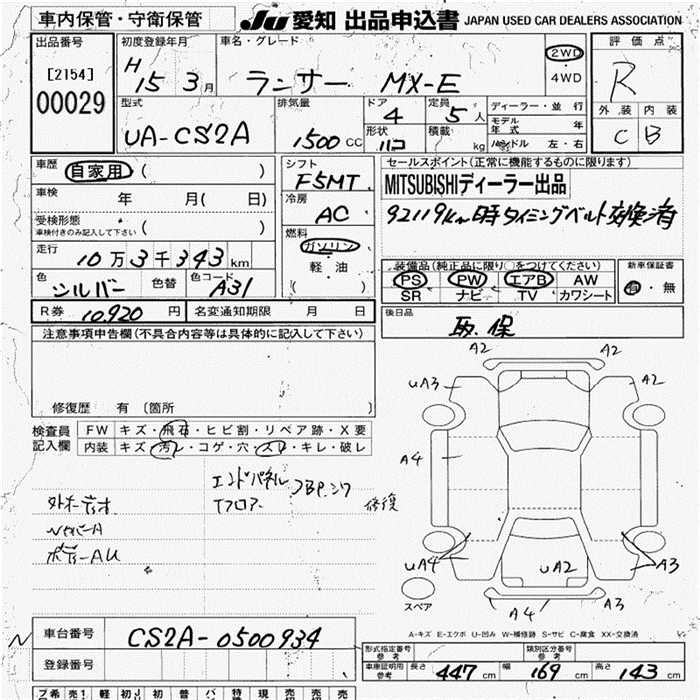 車内保管・守衛保管
Ju 愛知 出品申込書 JAPAN USED CAR DEALERS ASSOCIATION
出品番号
[2154]
00029
初度登録年月
H 15 3 月
車名・グレード
ランサー MX-E
2WD
4WD
評価点
R
外装 内装
C B
型式
UA-CS2A
排気量
1500 CC
ドア
4
形状
定員
5 人
積載
kg
ディーラー・並行
モデル年式 年
ハンドル 左・右
車歴
自家用 ( )
車検
年 月( 日)
受検形態
車検付きのみ記入して下さい ( )
走行
10万3千343km
色
シルバー
色替
色コード
A31
シフト
F5MT
冷房
AC
燃料
ガソリン
軽・油
( )
セールスポイント(正常に機能するものに限ります)
MITSUBISHIディーラー出品
92119km時タイミングベルト交換済
装備品(純正品に限り○をつけてください)
PS PW エアB AW
SR ナビ TV カワシート
新車保証書
有・無
R券 10,920 円
名変通知期限 月 日
後日品
取.保
注意事項申告欄(不具合内容等は具体的に記入して下さい)
修復歴 有〔箇所 〕
検査員記入欄
FW キズ・飛石・ヒビ割・リペア跡・X要
内装 キズ・汚レ・コゲ・穴・スレ・キレ・破レ
エンドパネル
Tフロアー
修復
外オーディオ
A2 A2
UA3 A2
A4
UA4 UA2 A3
A4 A3
スペア
A-キズ E-エクボ U-凹み W-補修跡 S-サビ C-腐食 XX-交換済
車台番号
CS2A-0500934
登録番号
形式指定番号 参考
類別区分番号 参考
車庫証明用 参考 長さ 447 cm 幅 169 cm 高さ 143 cm